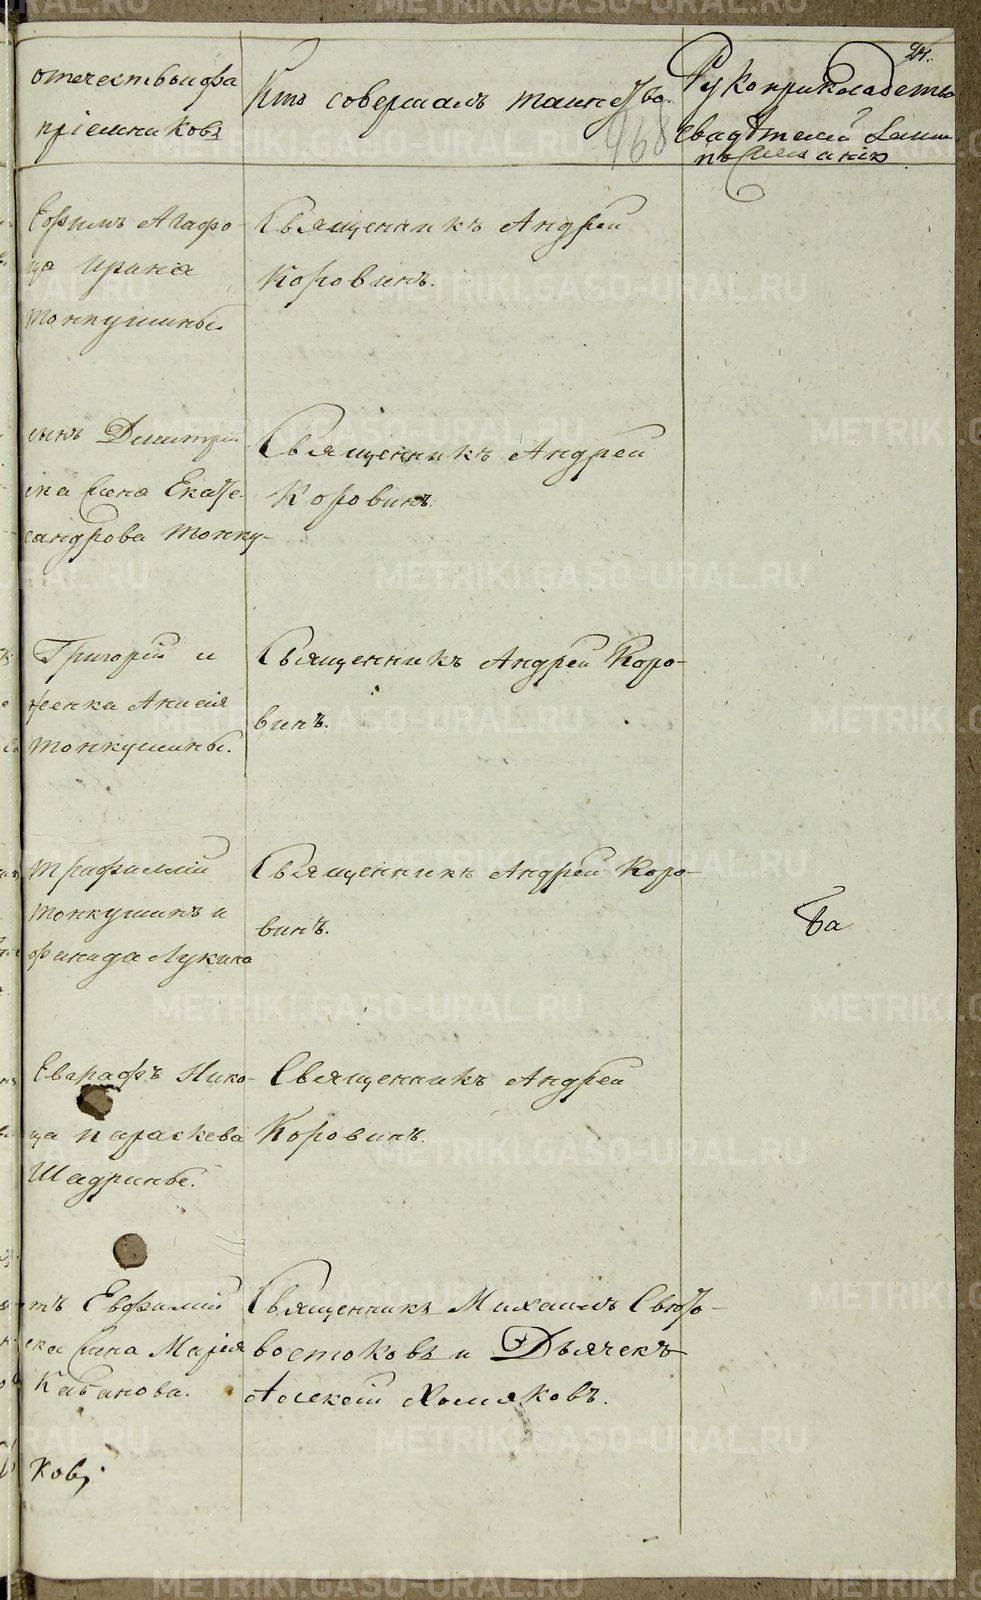 отечествы и фа
пріемниковъ
Кто совершалъ таинство.
968
Рукоприкладство
свидѣтелей
Ефимъ Агафо-
ца Ирина
Тонкушины.
Священникъ Андрей
Коровинъ.
сынъ Димитрій
Сына Екате-
сандрова Тонку-
Священникъ Андрей
Коровинъ.
Григорій и
женка Анисія
Тонкушины.
Священникъ Андрей Коро-
винъ.
Трифиллій
Тонкушинъ и
финида Лукина
Священникъ Андрей Коро-
винъ.
ва
Евграфъ Нико-
ца Параскева
Шадрины.
Священникъ Андрей
Коровинъ.
тъ Евфимій
Сына Марія
Кабанова.
Священникъ Михаилъ Свѣто-
востоковъ и Дьячекъ
Алексій Хомяковъ.
ковъ.
METRIKI.GASO-URAL.RU